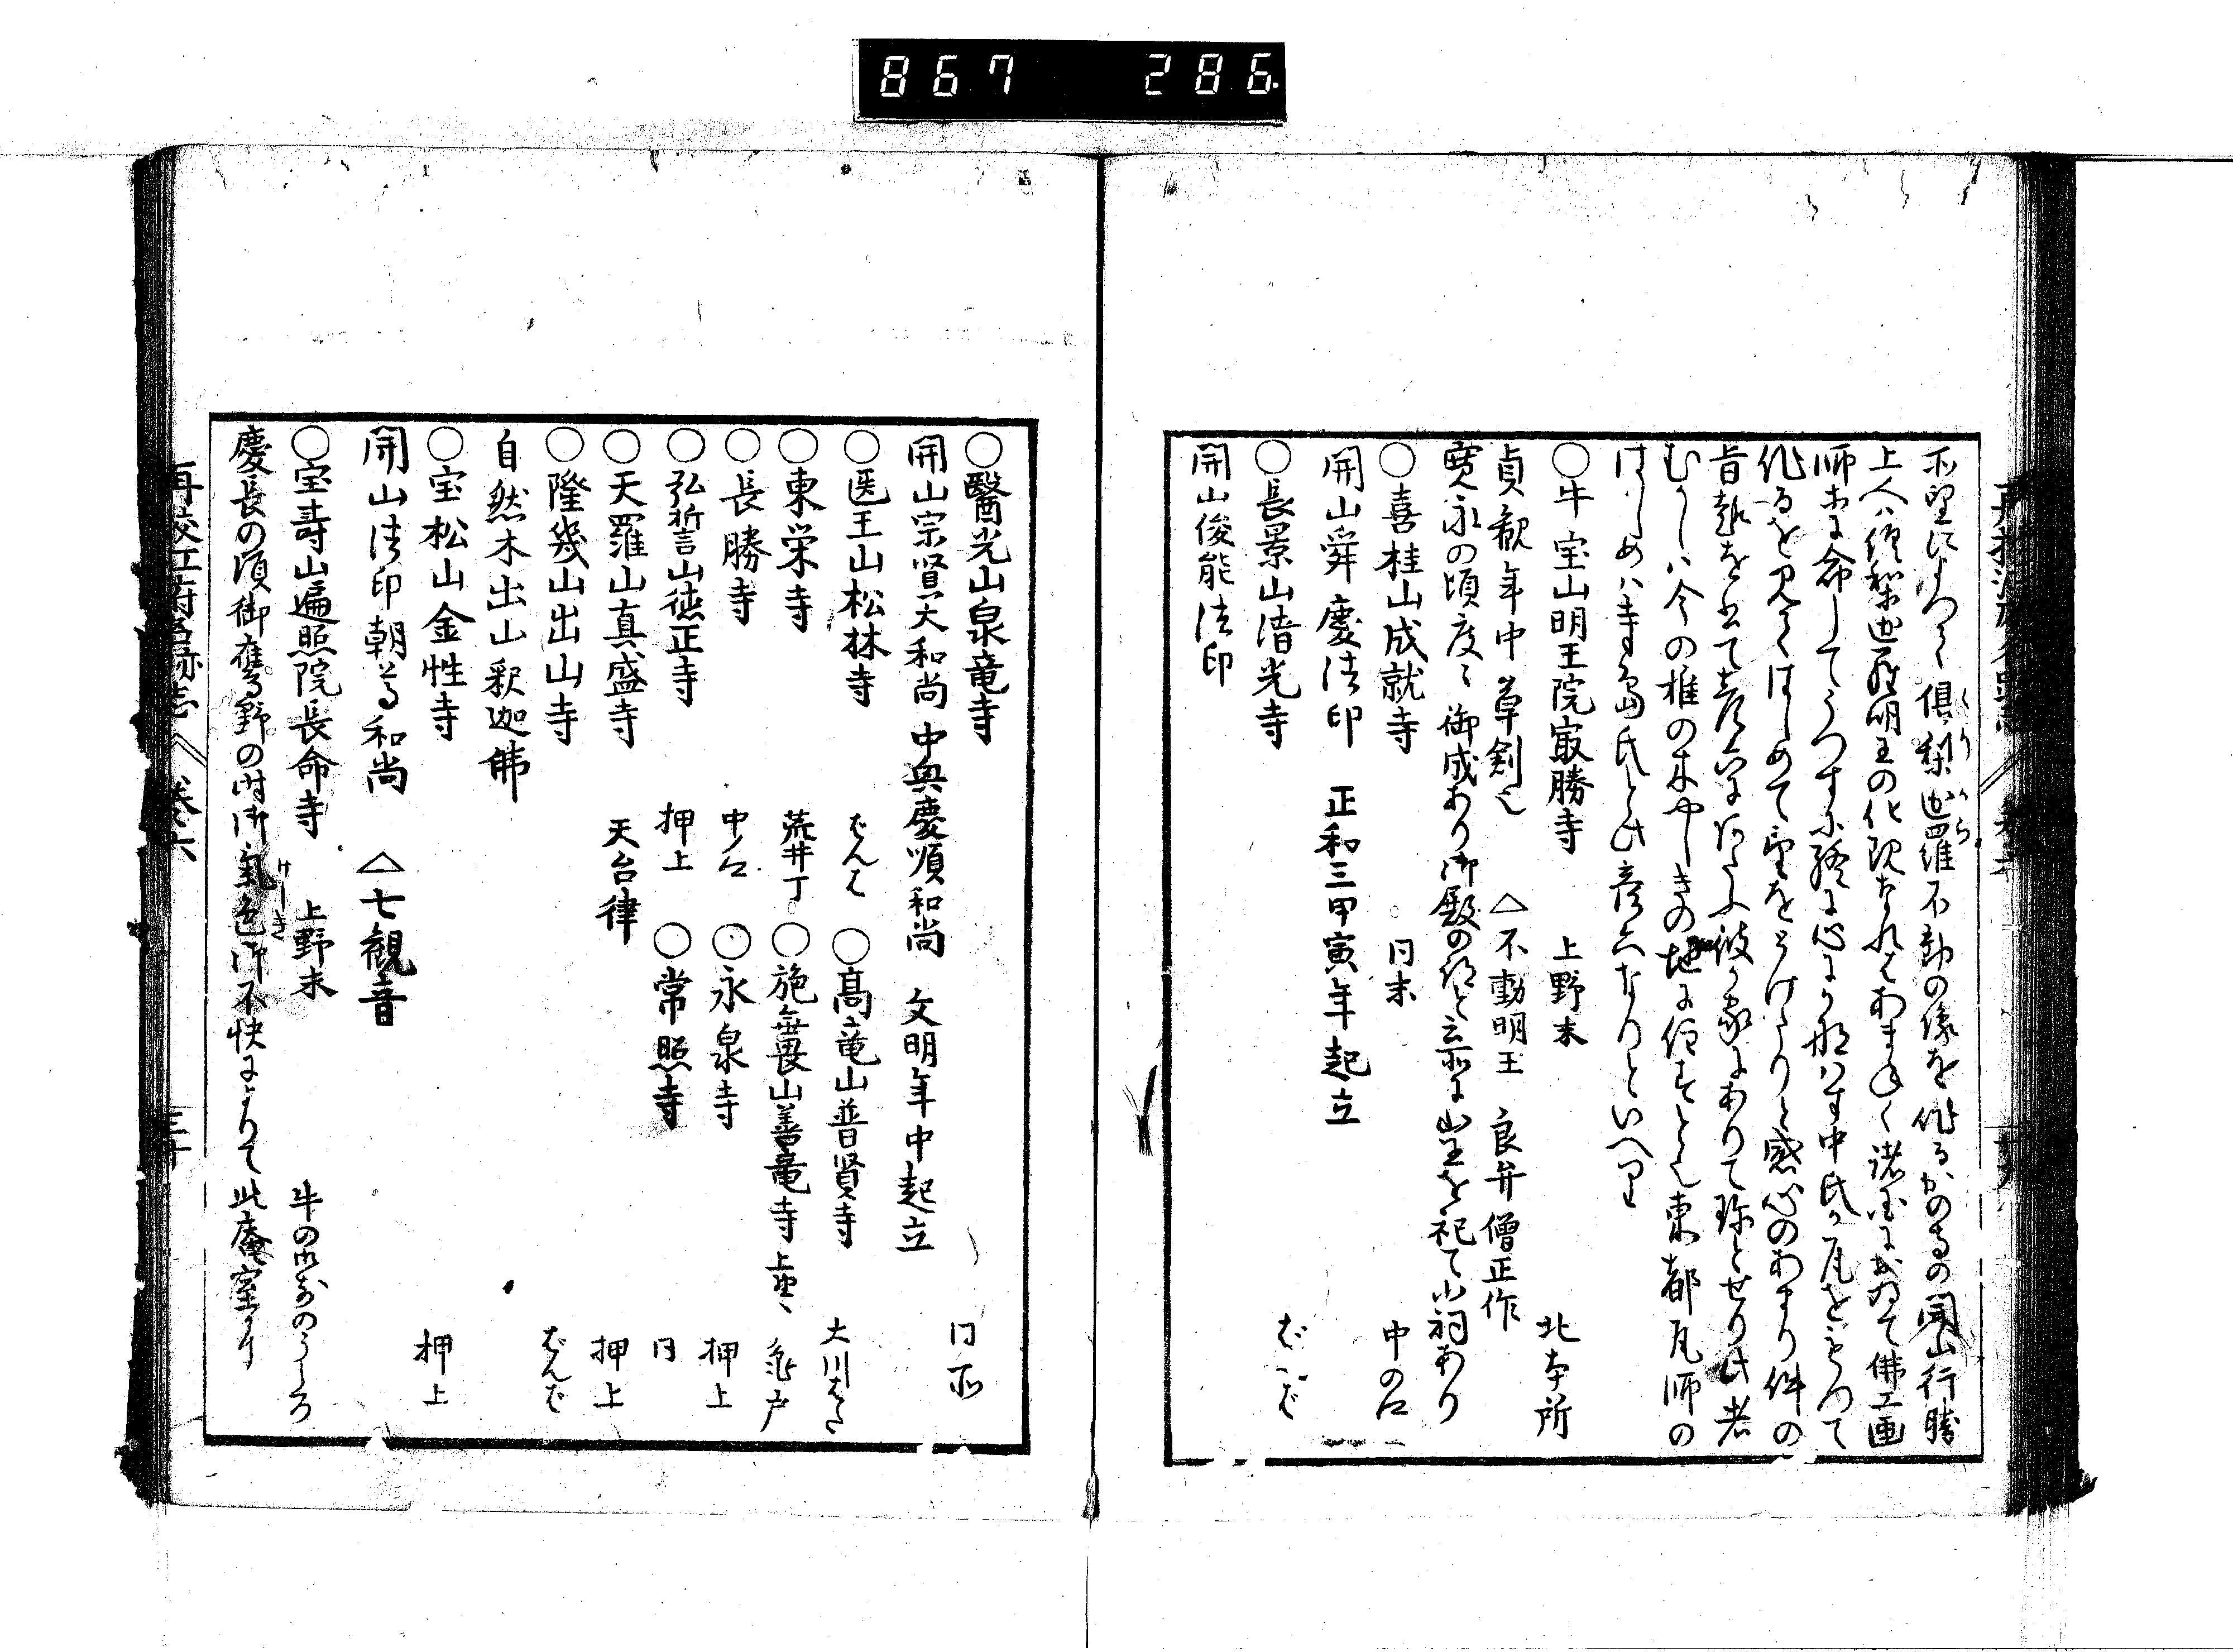 867 286
所望によつて倶梨迦羅不動の像を作るかの寺の開山行勝
上人ハ倶梨迦羅明王の化現なれはあまねく諸国において佛工画
師等に命してうつすに終に心にかなハす中氏か瓦をもつて
作るを見てはしめて望をとけたりと感心のあまり件の
旨趣を書て彦六にあたふ彼か家にありて珍とせり此者
むかしハ今の椎の木やしきの地に住すとそ東都瓦師の
はしめハ寺島氏と此彦六なりといへり
○牛宝山明王院最勝寺 上野末 北本所
貞観年中草創也 △不動明王 良弁僧正作
寛永の頃度々御成あり御殿の跡と云所に山王を祀て小祠あり
○喜桂山成就寺 同末 中の江
開山舜慶法印 正和三甲寅年起立
○長景山清光寺
開山俊能法印
○醫光山泉竜寺 同所
開山宗賢大和尚 中興慶順和尚 文明年中起立
○医王山松林寺 ○高竜山普賢寺 大川はた
○東栄寺 荒井丁 ○施無畏山善竜寺 亀戸
○長勝寺 ○永泉寺 押上
○弘誓山徳正寺 押上 ○常照寺 同
○天羅山真盛寺 天台律 押上
○隆幾山出山寺
自然木出山釈迦佛
○宝松山金性寺 押上
開山法印朝尊和尚 △七観音
○宝寿山遍照院長命寺 上野末 牛の御前のうしろ
慶長の頃御鷹野の時御氣色御不快によりて此庵室より
けしき
再校江府名跡志 巻六 三十